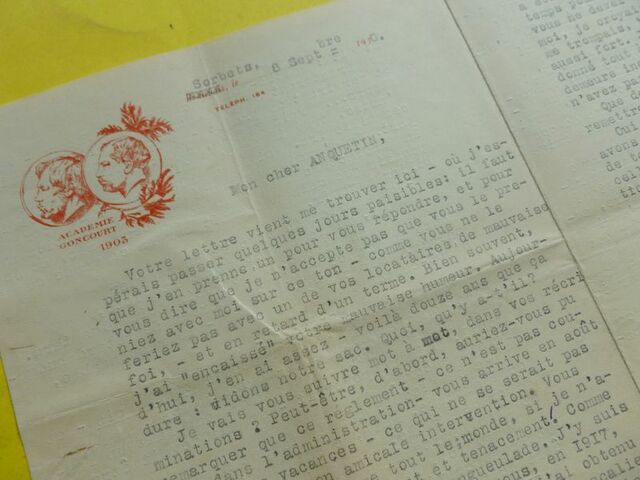 Sorbets, 8 Septbre 1920.
TÉLÉPH. 184
ACADEMIE
GONCOURT
1905
Mon cher ANQUETIN,
Votre lettre vient me trouver ici - où j'es-
pérais passer quelques jours paisibles: il faut
que j'en prenne un pour vous répondre, et pour
vous dire que je n'accepte pas que vous le pre-
niez avec moi sur ce ton - comme vous ne le
feriez pas avec un de vos locataires de mauvaise
foi, - et en retard d'un terme. Bien souvent,
j'ai "encaissé" votre mauvaise humeur. Aujour-
d'hui, j'en ai assez - voilà douze ans que ça
dure : vidons notre sac. Quoi, qu'y a-t'il?
Je vais vous suivre mot à mot, dans vos récri
minations : Peut-être, d'abord, auriez-vous pu
remarquer que ce règlement - ce n'est pas cou-
dans l'administration- vous arrive en août
vacances - ce qui ne se serait pas
mon amicale intervention. Vous
tout le monde, si je n'a-
et tenacement. Comme
engueulade. J'y suis
ous, en 1917,
j'ai obtenu
a so
temps po
vous ne deve
moi, je croya
me trompais,
aussi fort.
donné tout
demeure in
n'avez pas
remettr
Que d
Ou
avons
de
cel